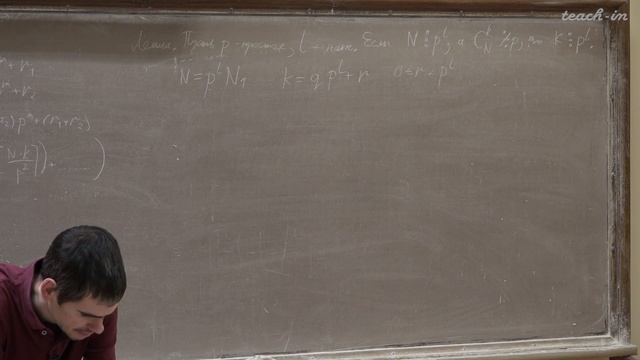 teach-in
Лемма. Пусть p - простое, l - нат. Если N ⋮ p^l, а C_N^k ⋮̸ p, то k ⋮ p^l.
N = p^l N_1   k = q p^l + r   0 ≤ r < p^l
r + r_1
r + r_2
r_2) p^n + (r_1 + r_2)